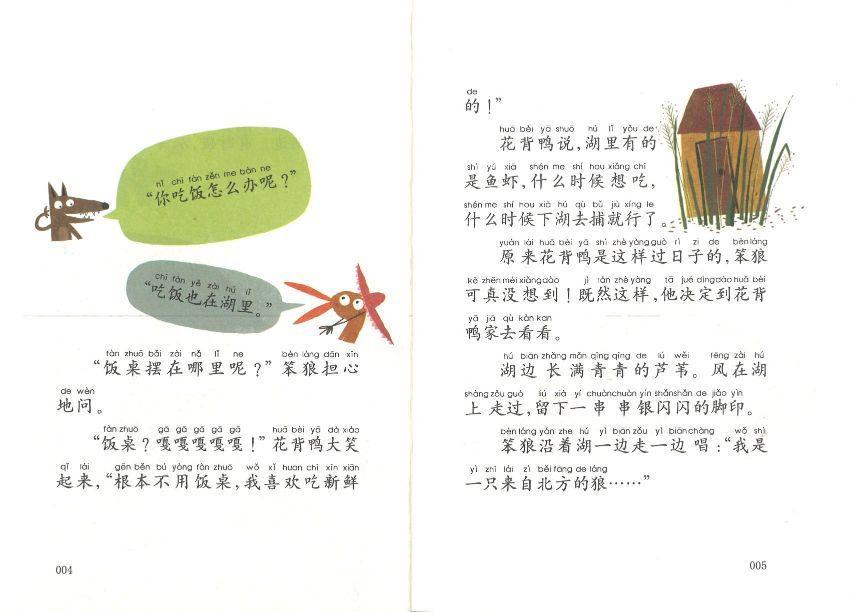 nǐ chī fàn zěn me bàn ne
“你吃饭怎么办呢？”
chī fàn yě zài hú lǐ
“吃饭也在湖里。”
fàn zhuō bǎi zài nǎ lǐ ne bèn láng dān xīn
“饭桌摆在哪里呢？”笨狼担心
de wèn
地问。
fàn zhuō gā gā gā gā gā huā bèi yā dà xiào
“饭桌？嘎嘎嘎嘎嘎！”花背鸭大笑
qǐ lái gēn běn bú yòng fàn zhuō wǒ xǐ huan chī xīn xiān
起来，“根本不用饭桌，我喜欢吃新鲜
004
de
的！”
huā bèi yā shuō hú lǐ yǒu de
花背鸭说，湖里有的
shì yú xiā shén me shí hou xiǎng chī
是鱼虾，什么时候想吃，
shén me shí hou xià hú qù bǔ jiù xíng le
什么时候下湖去捕就行了。
yuán lái huā bèi yā shì zhè yàng guò rì zi de bèn láng
原来花背鸭是这样过日子的，笨狼
kě zhēn méi xiǎng dào jì rán zhè yàng tā jué dìng dào huā bèi
可真没想到！既然这样，他决定到花背
yā jiā qù kàn kan
鸭家去看看。
hú biān zhǎng mǎn qīng qīng de lú wěi fēng zài hú
湖边长满青青的芦苇。风在湖
shàng zǒu guò liú xià yí chuàn chuàn yín shǎn shǎn de jiǎo yìn
上走过，留下一串串银闪闪的脚印。
bèn láng yán zhe hú yì biān zǒu yì biān chàng wǒ shì
笨狼沿着湖一边走一边唱：“我是
yì zhī lái zì běi fāng de láng
一只来自北方的狼……”
005